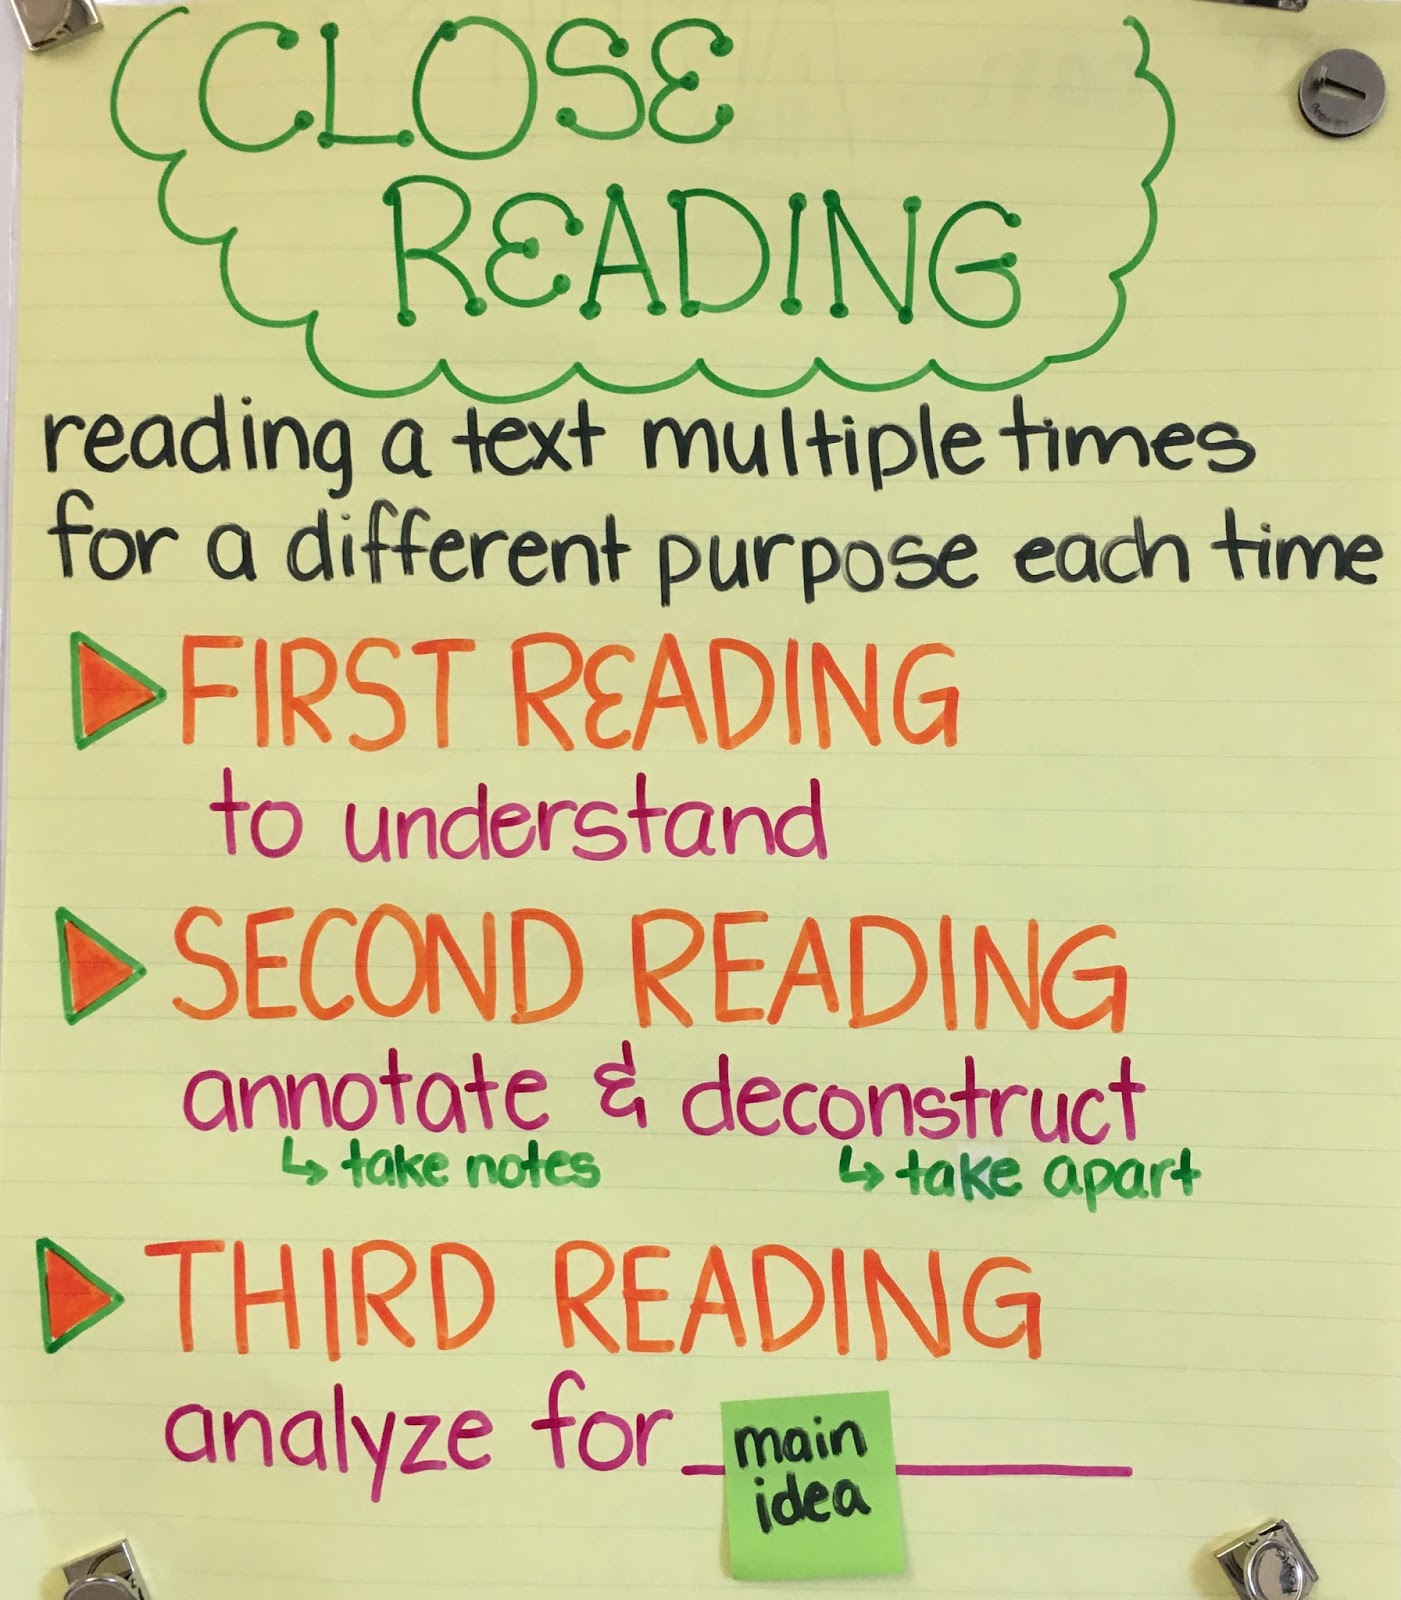 CLOSE
READING
reading a text multiple times
for a different purpose each time
FIRST READING
to understand
SECOND READING
annotate & deconstruct
↳ take notes ↳ take apart
THIRD READING
analyze for
main
idea